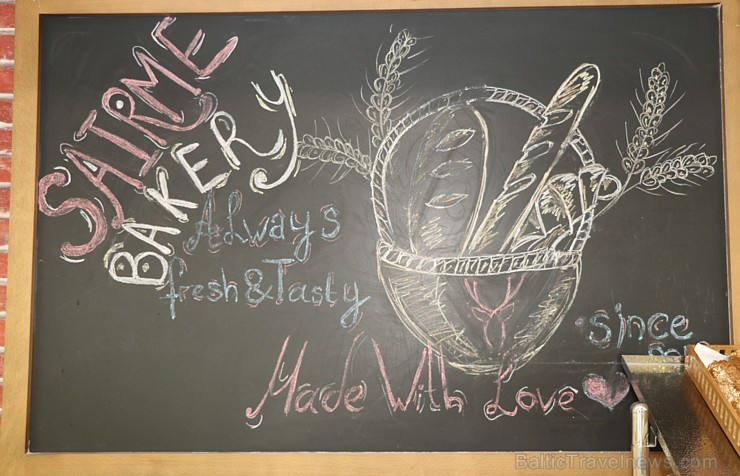 SAIRME
BAKERY
Always
fresh & Tasty
since
Made With Love
BalticTravelnews.com